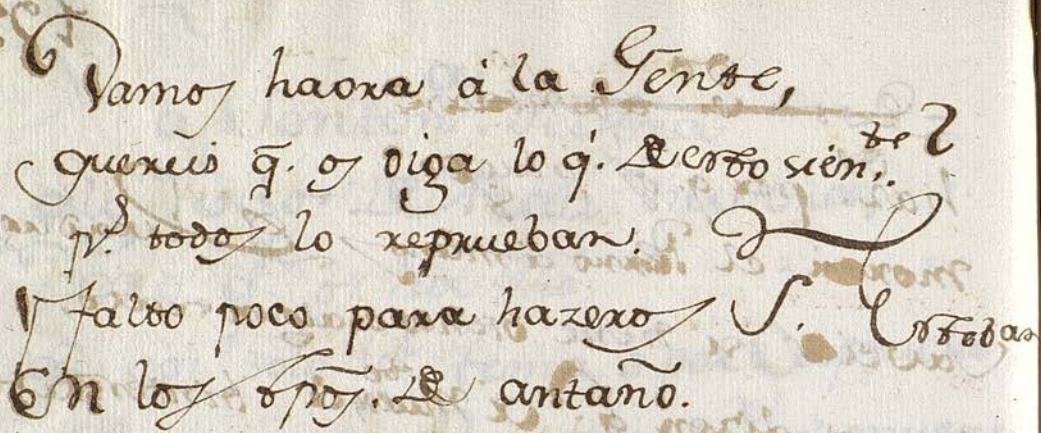 Vamos haora á la Gente,
quereis q̃. os diga lo q̃. de esto sien.te?
pr. todos lo reprueban.
Y falto poco para hazeros S. Esteban
En los tpõs. de antaño.